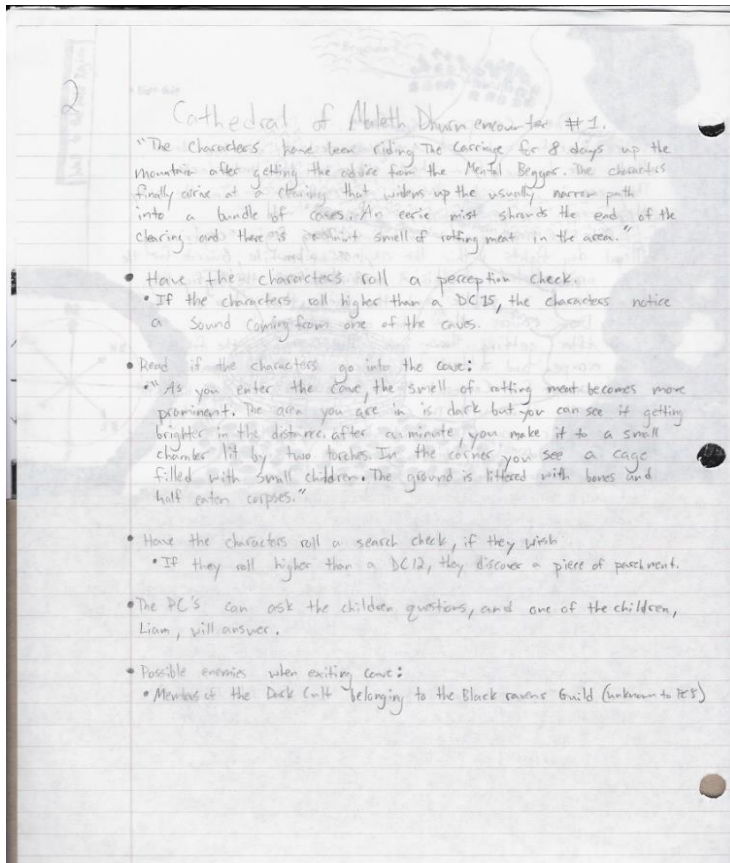 2
Cathedral of Abaleth Dhurn encounter #1.
"The Characters have been riding The Carriage for 8 days up the
mountain after getting the advice from the Mental Beggar. The characters
finally arrive at a clearing that widens up the usually narrow path
into a bundle of caves. An eerie mist shrouds the end of the
clearing and there is a faint smell of rotting meat in the area."
• Have the characters roll a perception check.
• If the characters roll higher than a DC15, the characters notice
a sound coming from one of the caves.
• Read if the characters go into the cave:
• "As you enter the cave, the smell of rotting meat becomes more
prominent. The area you are in is dark but you can see it getting
brighter in the distance. after a minute, you make it to a small
chamber lit by two torches. In the corner you see a cage
filled with small children. The ground is littered with bones and
half eaten corpses."
• Have the characters roll a search check, if they wish
• If they roll higher than a DC12, they discover a piece of parchment.
• The PC's can ask the children questions, and one of the children,
Liam, will answer.
• Possible enemies when exiting cave:
• Members of the Dark Cult belonging to the Black ravens Guild (unknown to PC's)